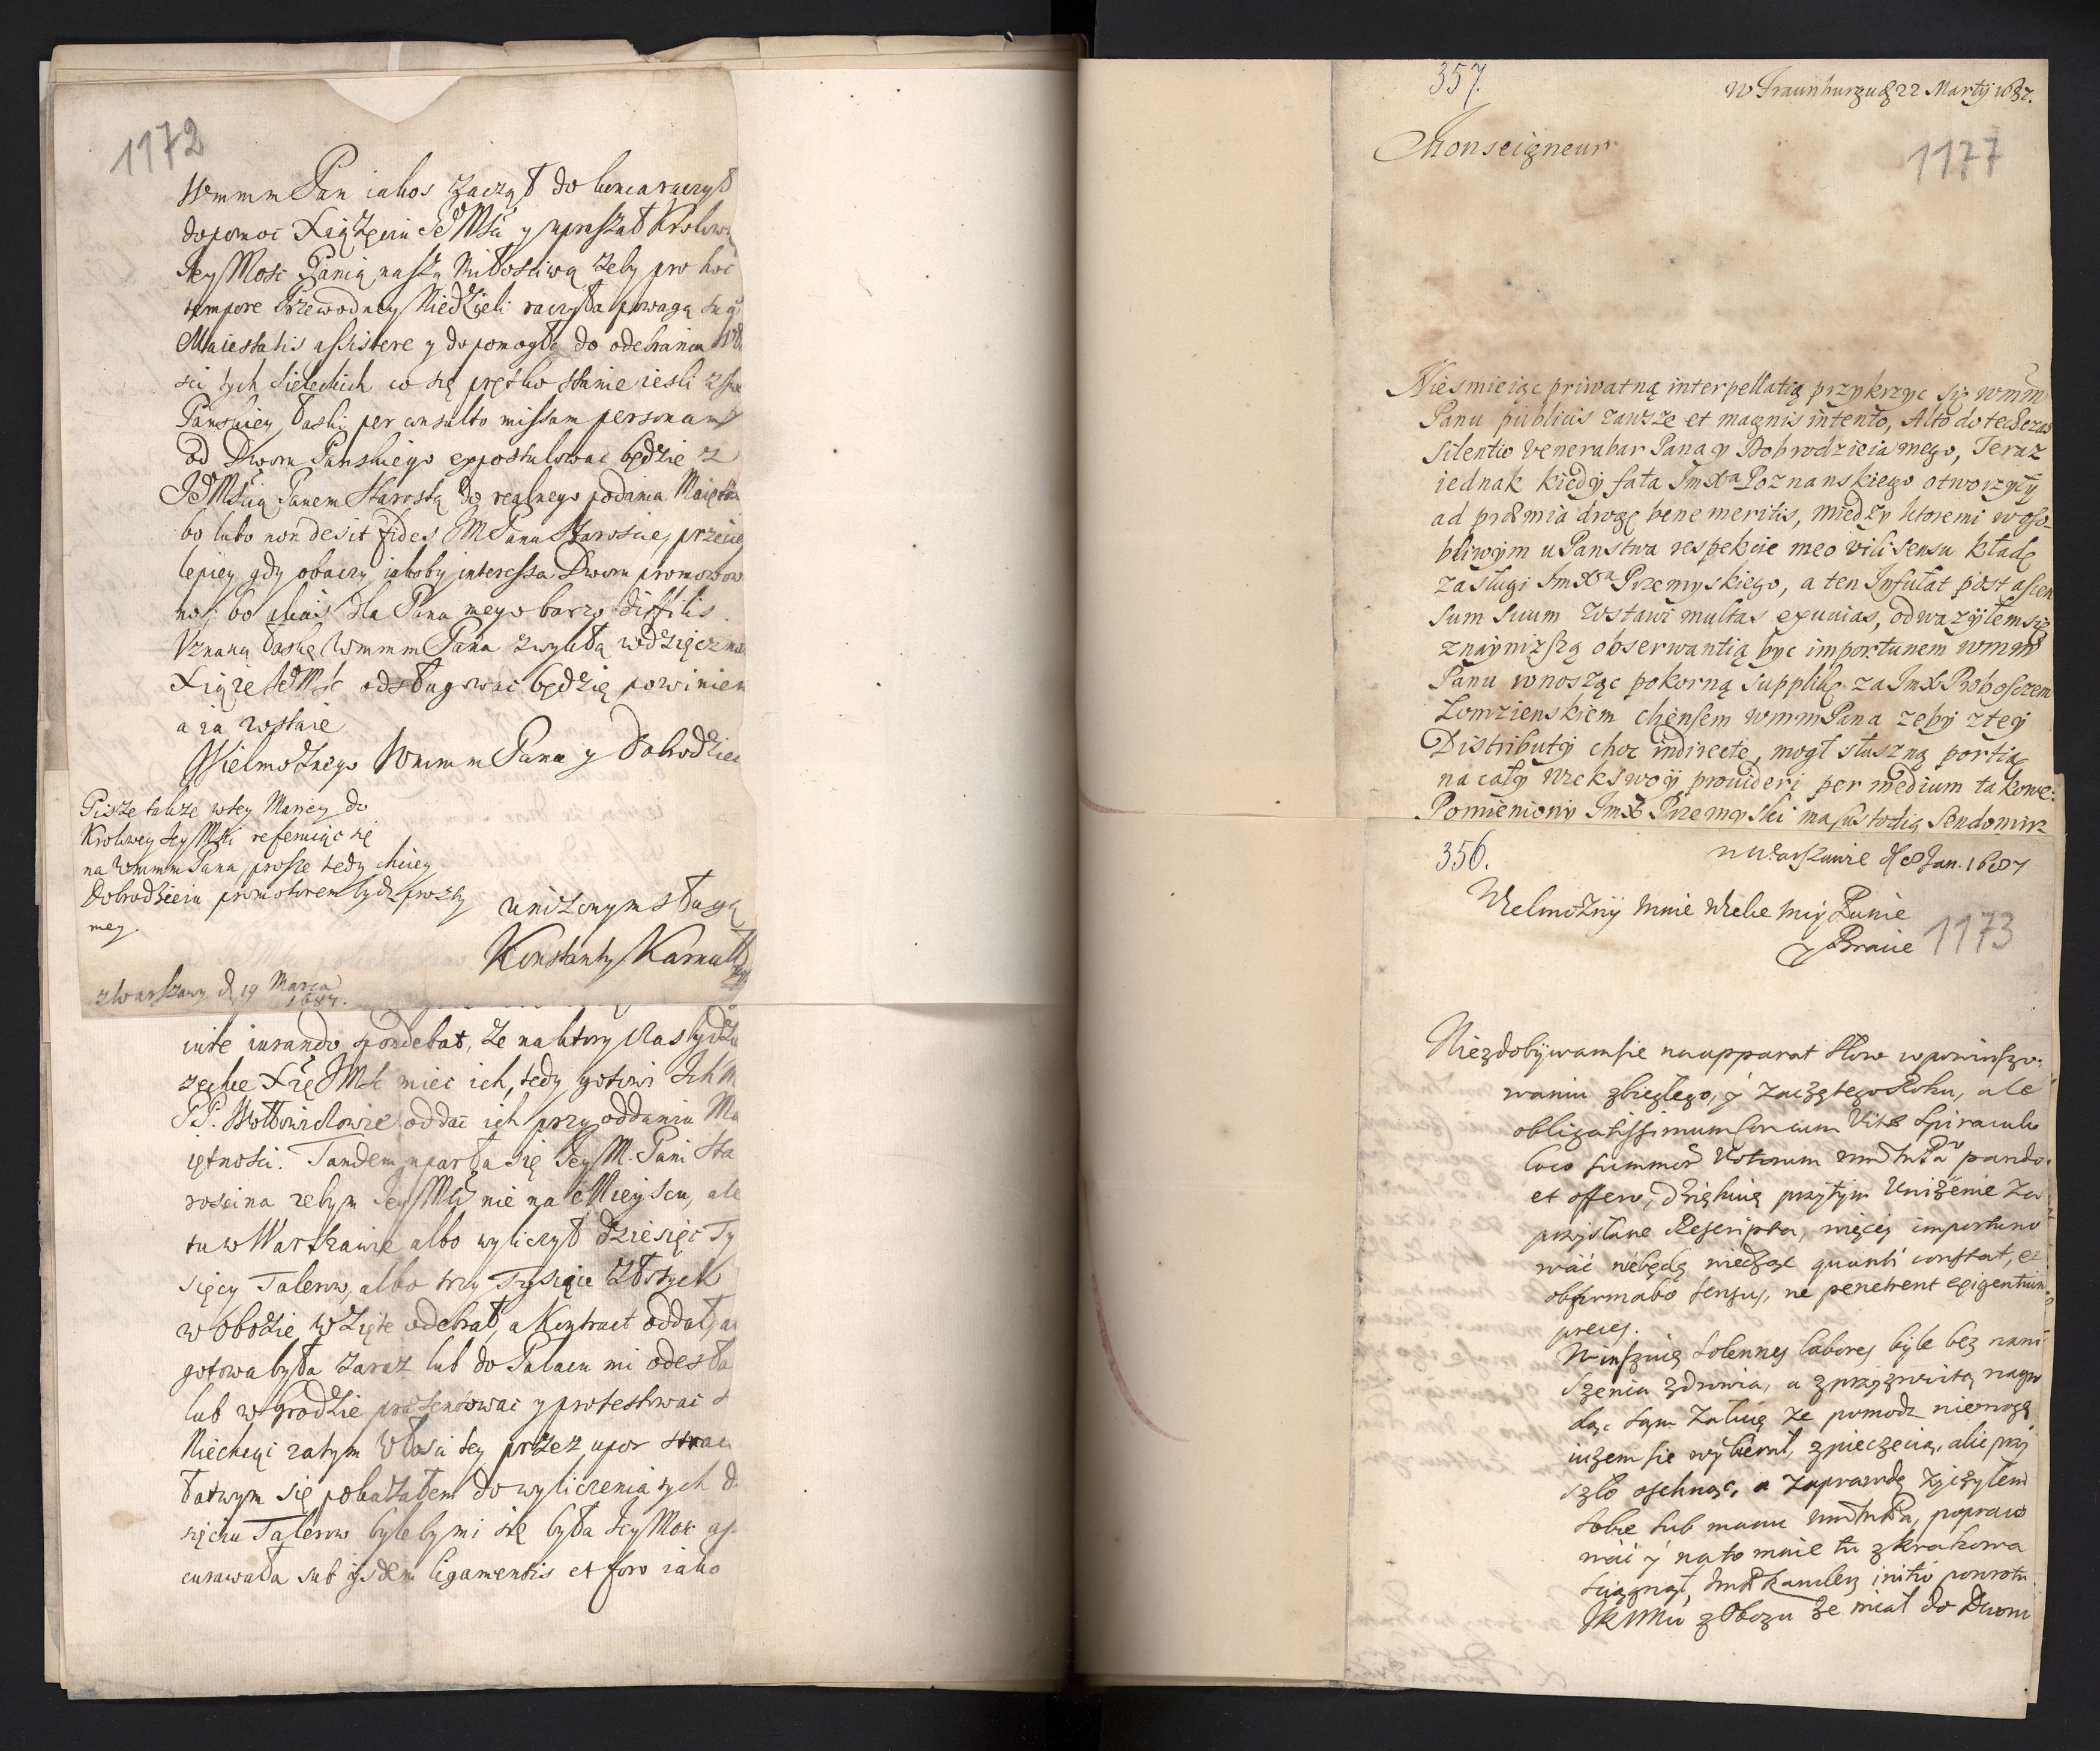 1172
WmmmPan iakos zaczął do konca raczył
dopomoc Xiążęciu JeoMśći y upraszał Krolową
Jey Mość Panią naszą Miłościwą żeby pro hoc
tempore Przewodney Niedzieli raczyła powagą swą
Maiestatis assistere y dopomogła do odebrania Wło
sci tych Sieleckich co się prętko stanie iesli z
Panskiey łaski per consulto missam personam
od Dworu Panskiego expostulować będzie z
JeoMścią Panem Starostą do realnego podania Maiętn
bo lubo non desit fides JM Panu Staroście, przecię
lepiey gdy obaczy iakoby interessa Dworu promowow
no; bo dla Pana mego barzo difficilis.
Uznaną łaskę Wmmm Pana zwykłą wdzięczno
Xiąże JeoMść odsługować będzie powinien
a ia wstaie
Wielmożnego Wmmm Pana y Dobrodzie
Pisze także w tey Materyey do
Krolowey Jey Mśći referuiąc się
na Wmmm Pana, prosze tedy chciey
Dobrodzieiu promotorem bydź prozby
mey.
uniżonym sługą
Konstanty Karna
z Warszawy d. 19 Marca
1687.
iure iurando spondebat, że na ktory czas bydz
zechce Xże JMść miec ich, tedy gotowi Ich M
PP. Wołłowiczowie oddać ich przy oddaniu Ma
iętnosci. Tandem uparła się Jey M. Pani Sta
roscina zebym Jey Mśći nie na Mieyscu, ale
tu w Warszawie albo wyliczył dziesięć Ty
sięcy Talerow, albo trzy Tysiące Złotych
w obozie wzięte odebrał, a Kontract oddał, a
gotowa była zaraz lub do Pałacu mi odesła
lub w Grodzie prezentować y protestować
Niechcąc zatym Włości tey przez upor strac
łatwym się pokazałem do wyliczenia tych d
sięciu Talerow bylebymi się była Jey Mość as
curowała sub iisdem ligamentis et foro iako
357.
W Fraunburgu d 22 Martij 1687.
Monseigneur
1177
Niesmieiąc priwatną interpellatią przykrzyc się wmm
Panu publicis zawsze et magnis intento, Alto dotedczas
silentio venerabar Pana y Dobrodzieia mego, Teraz
iednak kiedy fata ImXa Poznanskiego otworzyły
ad præmia drogę bene meritis, między ktoremi w oso-
bliwym u Panstwa respekcie meo vili sensu kładę
zasługi ImXa Przemyskiego, a ten Infułat post ascen
sum suum zostawi multas exuuias, odwazyłem się
znayniższą obserwantią byc importunem wmm
Panu wnosząc pokorną supplikę za ImX Proboszczem
Lomzienskiem chcensem wmmPana zeby z tey
Distributy choc indirecte, mogł słuszną portią
na cały wiek swoy prouideri per medium takowe:
Pomieniony ImX Przemyski ma custodią Sendomirz
356.
w Warszawie d 8 Jan. 1687
Wielmożny Mnie Wielce Mći Panie
y Bracie
1173
Niezdobywam sie na apparat słow w powinszo-
waniu zbiegłego, y zaczętego Roku, ale
obligatissimum cor cum vitæ spiraculo
loco summor Votorum pando
et offero, dziękuię przytym uniżenie za
przysłane Rescripta, więcey importuno
wać niebędę wiedząc quanti constat, et
obfirmabo sensus, ne penetrent exigentium
preces.
Winszuię solennes labores byle bez naru
szenia zdrowia, a z przyzwoitą nagro
dą, sam żałuię że pomodz niemogę
iużem sie wybierał, z pieczecią, alic przy
szło oschnąć, a zaprawdę życzyłem
sobie sub manu popraco
wać y na to mnie tu z Krakowa
sciągnął, Kanclerz initio powrotu
JKMści z Obozu że miał do Dworu